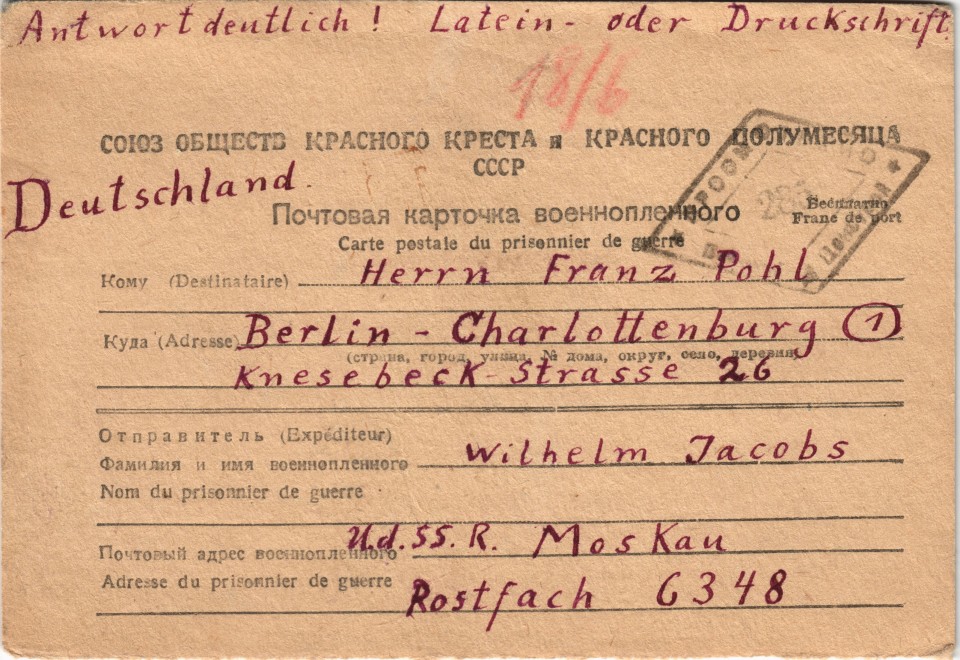 Antwort deutlich! Latein- oder Druckschrift.
18/6
СОЮЗ ОБЩЕСТВ КРАСНОГО КРЕСТА и КРАСНОГО ПОЛУМЕСЯЦА
СССР
Deutschland.
Бесплатно
Почтовая карточка военнопленного
Franc de port
Carte postale du prisonnier de guerre
Кому (Destinataire) Herrn Franz Pohl
Куда (Adresse) Berlin - Charlottenburg 1
(страна, город, улица, № дома, округ, село, деревня)
Knesebeck-Strasse 26
Отправитель (Expéditeur)
Фамилия и имя военнопленного Wilhelm Jacobs
Nom du prisonnier de guerre
Почтовый адрес военнопленного U.d.SS.R. Moskau
Adresse du prisonnier de guerre Postfach 6348